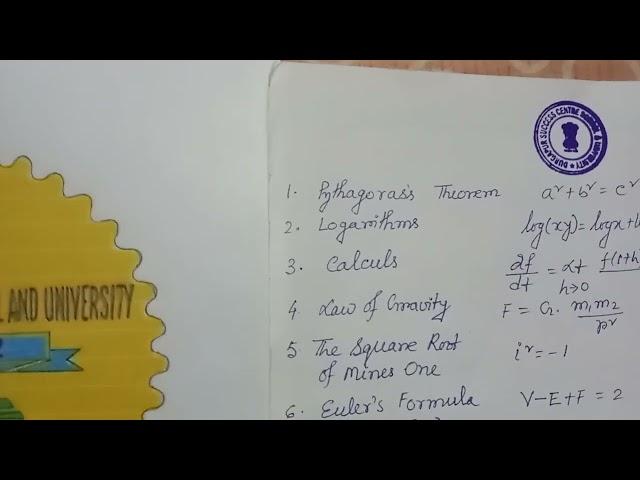 L AND UNIVERSITY
DURGAPUR SUCCESS CENTRE
1. Pythagoras's Theorem a² + b² = c²
2. Logarithms log(xy) = logx +
3. Calculs df/dt = Lt h→0 f(t+h)
4 Law of Gravity F = G. m₁m₂/r²
5 The Square Root i² = -1
of Mines One
6. Euler's Formula V-E+F = 2